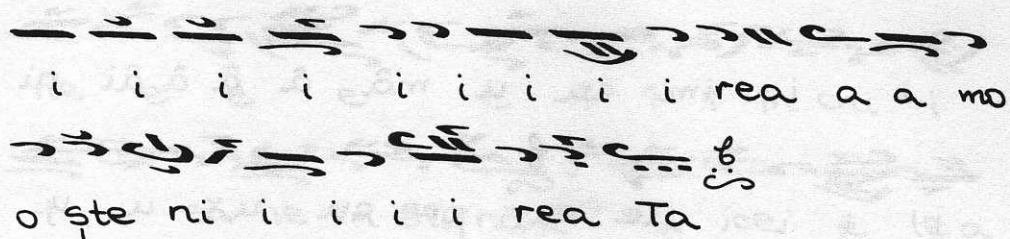 i i i i i i i i i rea a a mo
o ște ni i i i i rea Ta